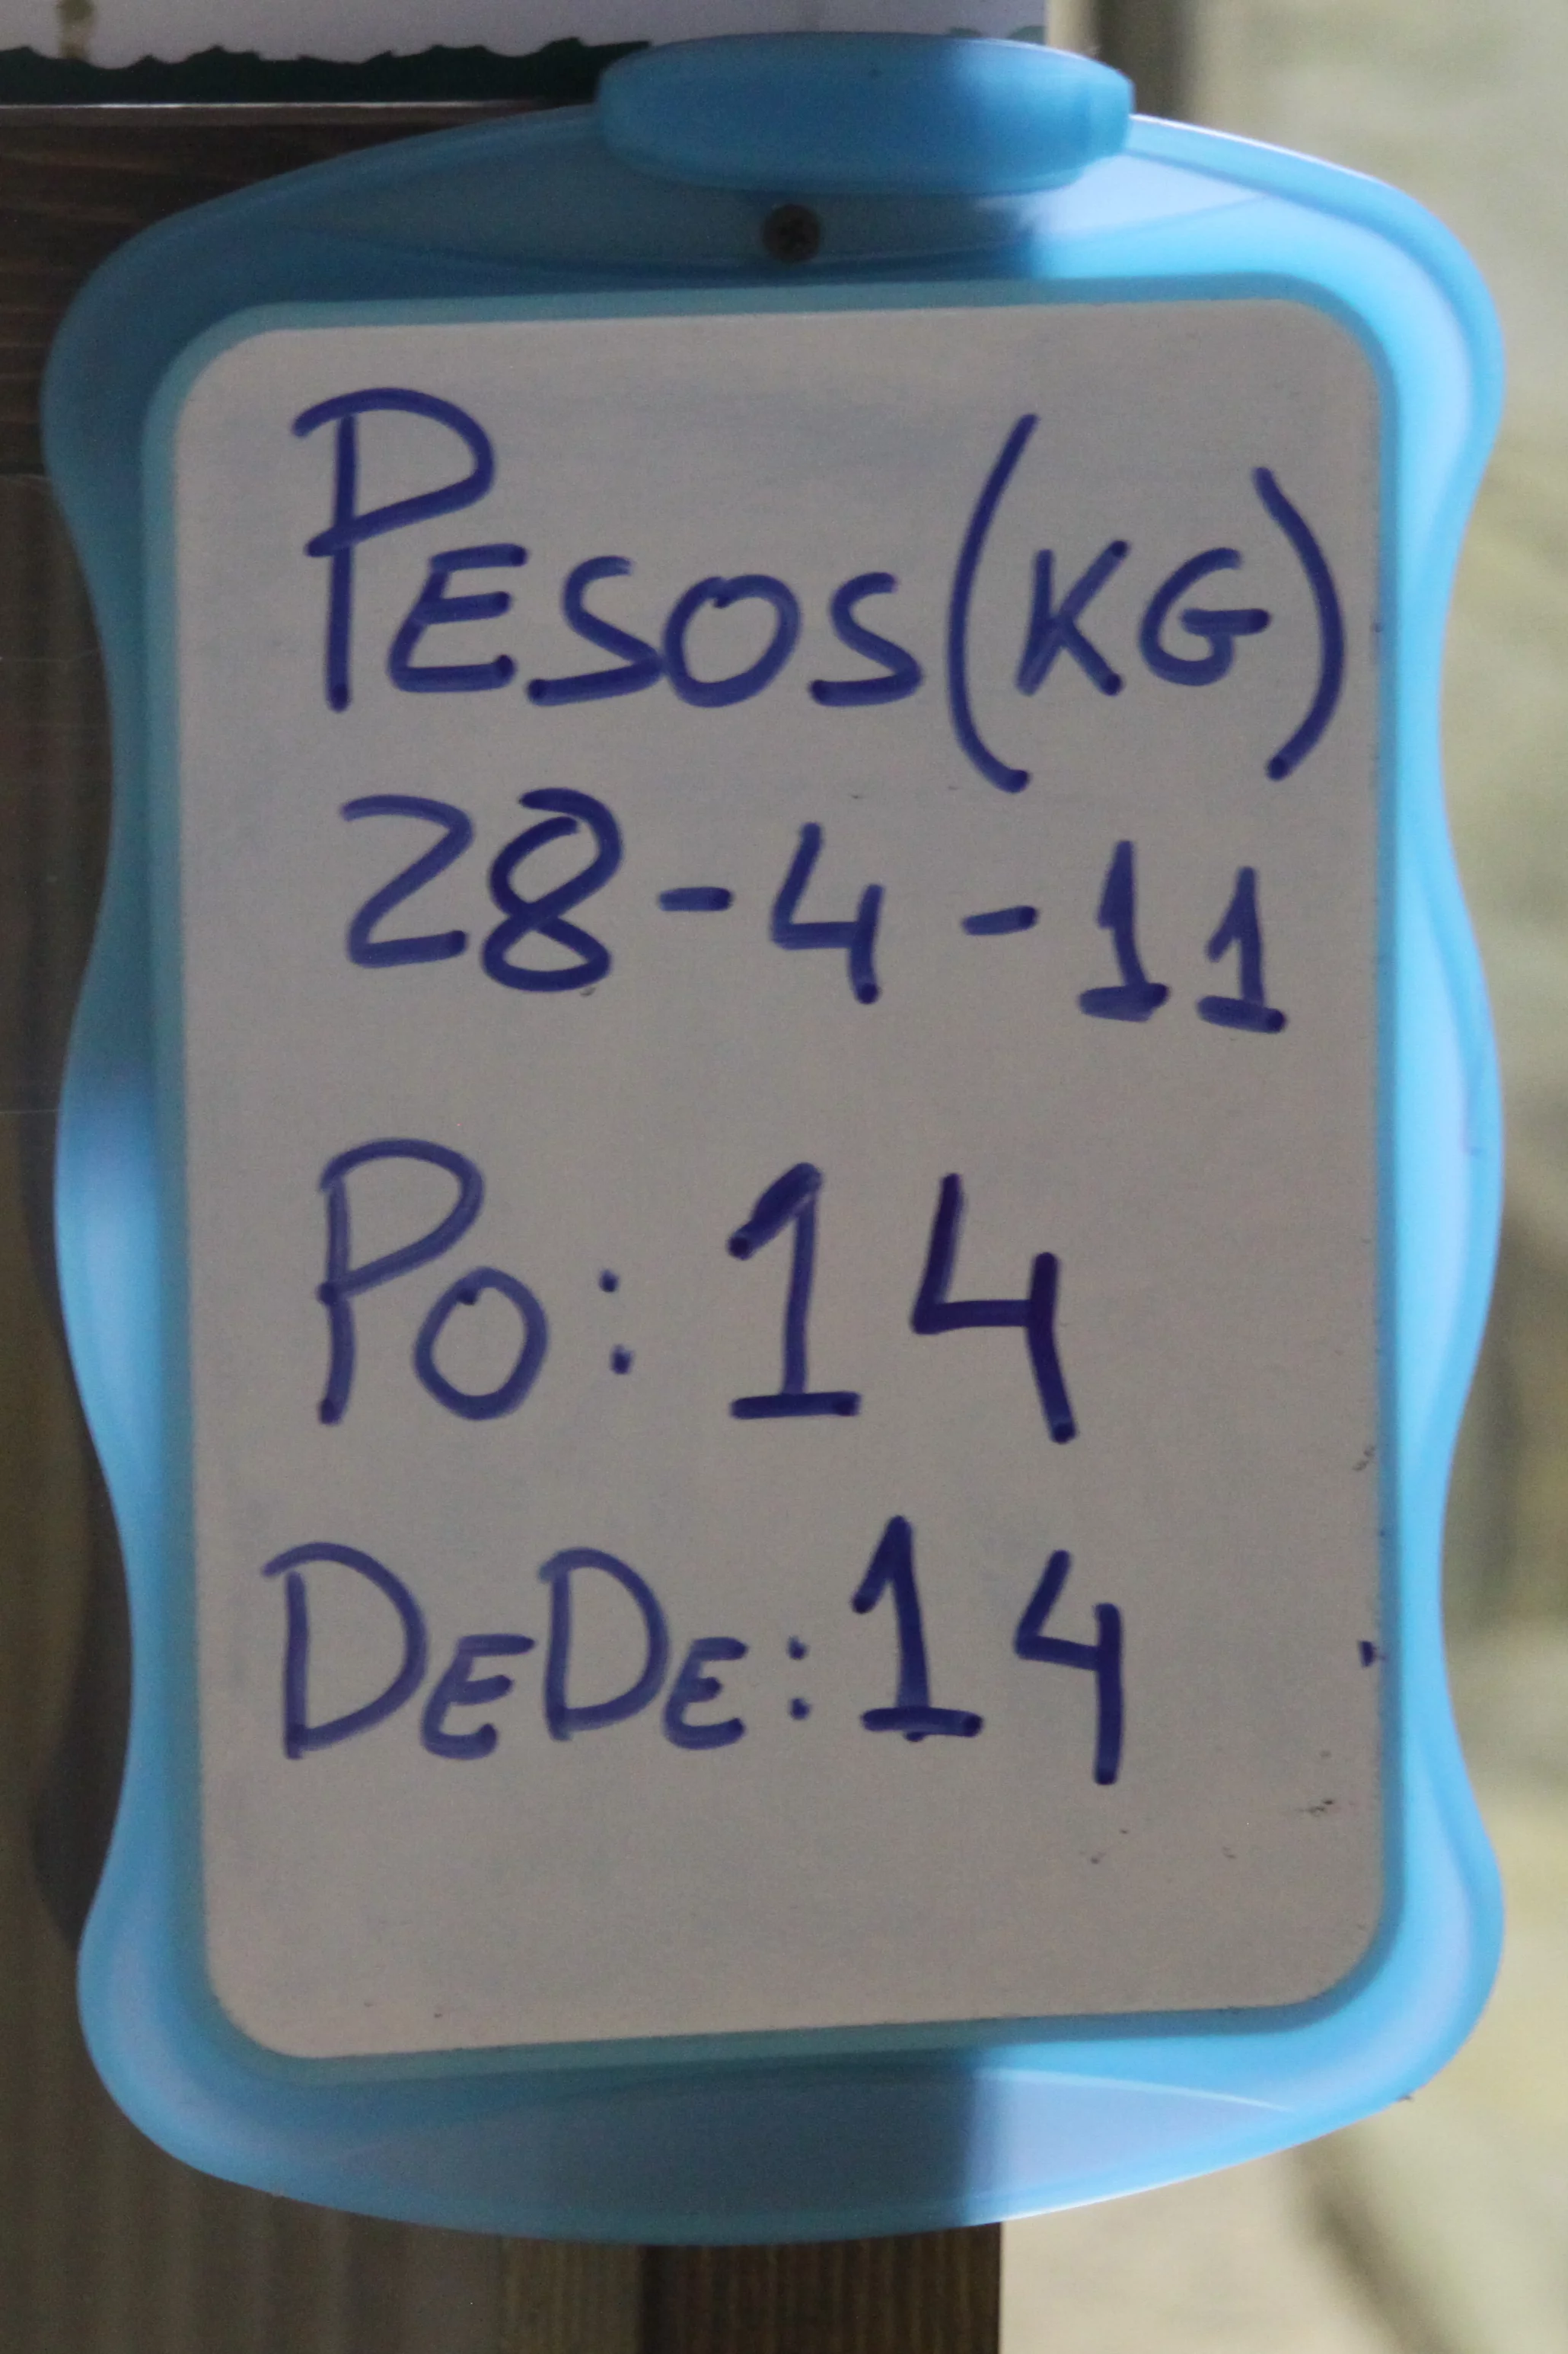 PESOS (KG)
28-4-11
PO: 14
DEDE: 14